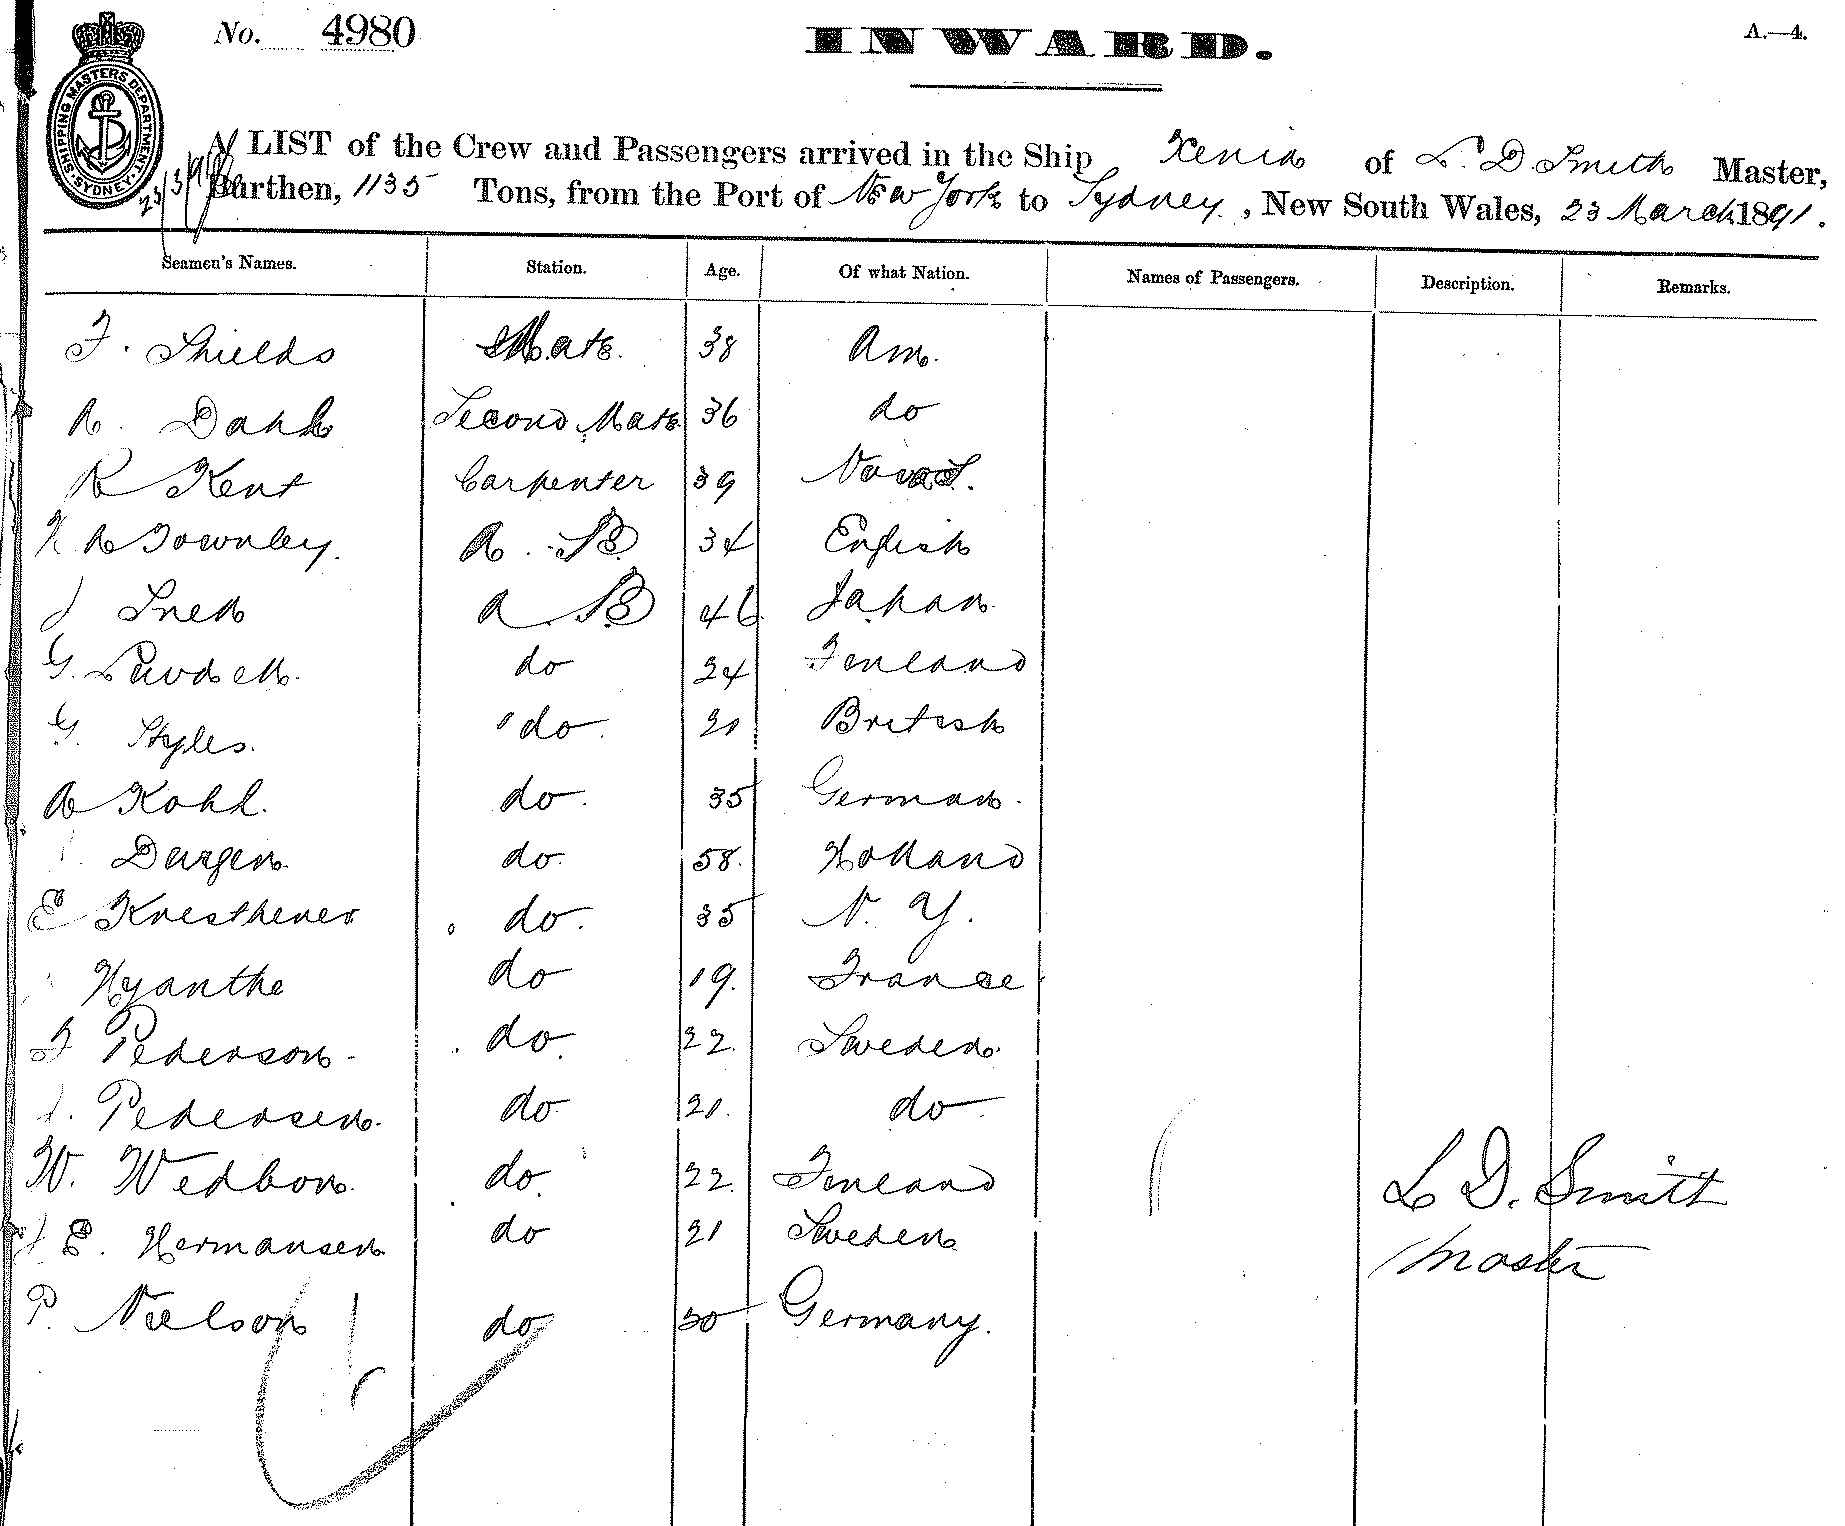 No. 4980 INWARD. A.—4.
SHIPPING MASTERS DEPARTMENT SYDNEY
23/3/91
A LIST of the Crew and Passengers arrived in the Ship Xenia of L. D Smith Master,
Burthen, 1135 Tons, from the Port of New York to Sydney, New South Wales, 23 March 1891.
Seamen's Names. Station. Age. Of what Nation. Names of Passengers. Description. Remarks.
F. Shields Mate. 38 Am.
A. Dahl Second Mate 36 do
R Kent Carpenter 39 Nova S.
A Townley. A. B. 34 English
J Sned A B 46 Japan
G. do 24 Finland
G. Styles. do 21 British
A Kohl. do. 35 German.
Durgen do. 58. Holland
E do. 35 N. Y.
Hyanthe do 19. France
F Pederson do 22. Sweden.
J. Pedersen. do 21. do
W. Wedbon. do. 22. Finland
J. E. Hermansen do 21 Sweden
L D. Smith
Master
P. Nielson do 30 Germany.